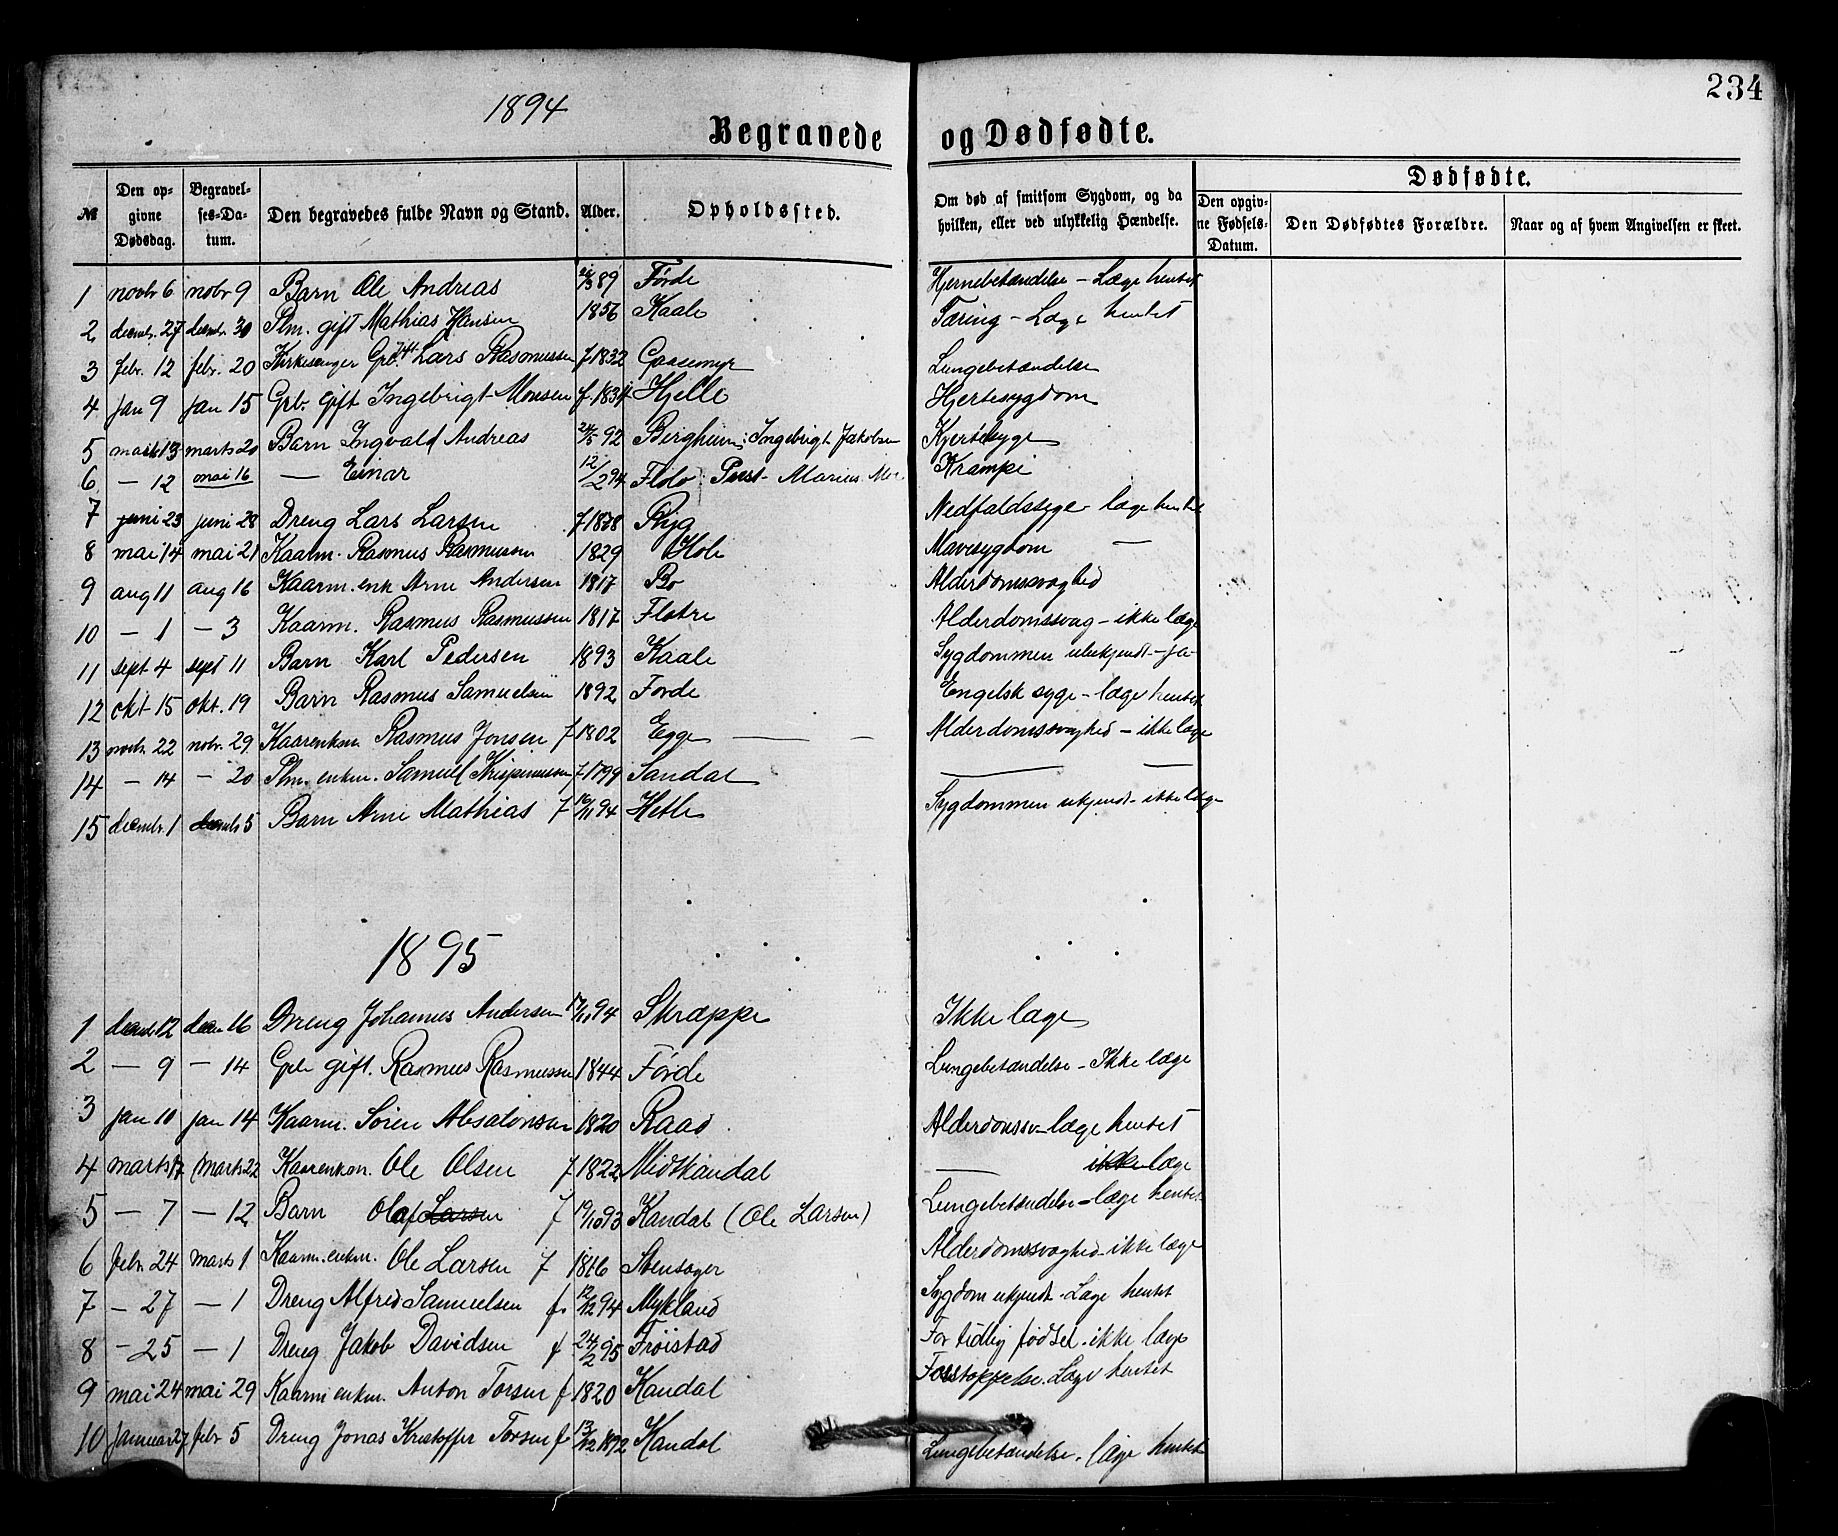 234
1894
Begravede og Dødfødte.
№ | Den opgivne Dødsdag. | Begravelses-Datum. | Den begravedes fulde Navn og Stand. | Alder. | Opholdssted. | Om død af smitsom Sygdom, og da hvilken, eller ved ulykkelig Hændelse. | Dødfødte. | Den opgivne Fødsels-Datum. | Den Dødfødtes Forældre. | Naar og af hvem Angivelsen er skeet.
1 novbr 6 nobr 9 Barn Ole Andreas 89 Førde Hjernebetændelse - Læge hentet
2 decmbr. 27 decmbr 30 Plm. gift Mathias Hansen 1856 Kaale Tæring - Læge hentet
3 febr. 12 febr. 20 Kirkesanger Grb. Lars Rasmussen f 1832 Gaasemyr Lungebetændelse
4 jan 9 jan 15 Grb. gift Ingebrigt Monsen f. 1834 Hjelle Hjertesygdom
5 marts 13 marts 20 Barn Ingvald Andreas 24/5 92 Bergheim: Ingebrigt Jakobsen Kjertelsyge
6 - 12 mai 16 — Einar 12/2 94 Florø: Marius Krampe
7 juni 23 juni 28 Dreng Lars Larsen f 1878 Ryg Nedfaldssyge læge hentet
8 mai 14 mai 21 Kaarm. Rasmus Rasmussen 1829 Hole Mavesygdom —
9 aug 11 aug 16 Kaarm. enk Arne Andersen 1817 Bø Alderdomssvaghed
10 - 1 - 3 Kaarm. Rasmus Rasmussen 1817 Fløtre Alderdomssvag - ikke læge
11 sept 4 sept 11 Barn Karl Pedersen 1893 Kaale Sygdommen ubekjendt - ja -
12 okt 15 okt. 19 Barn Rasmus Samuelsen 1892 Førde Engelsk syge - læge hentet
13 novbr. 22 nobr. 29. Kaarenkm. Rasmus Jonsen f 1802 Egge — - Alderdomssvaghed - ikke læge
14 - 14 - 20 Plm. enkm. Samuel f 1799 Sandal — —
15 decmbr. 1 decmbr 5 Barn Arne Mathias f 16/11 94 Hetle Sygdommen ukjendt - ikke læge
1895
1 decmb 12 decm 16 Dreng Johannes Andersen 94 Skrappe Ikke læge
2 - 9 - 14 Grb. gift. Rasmus Rasmussen 1844 Førde Lungebetændelse - Ikke læge
3 jan 10 jan 14 Kaarm. Søren Absalonsen 1820 Raad Alderdomssv - læge hentet
4 marts 17 marts 22 Kaarenkm. Ole Olsen f 1822 Midtkandal — ikke læge
5 - 7 - 12 Barn Olaf Larsen f 19/10 93 Kandal (Ole Larsen) Lungebetændelse - læge hentet
6 febr. 24 marts 1 Kaarm. enkm. Ole Larsen f 1816 Stensager Alderdomssvaghed - ikke læge
7 - 27 - 1 Dreng Alfred Samuelsen f. 12/12 94 Mykland Sygdom ukjendt - Læge hentet
8 - 25 - 1 Dreng Jakob Davidsen f 24/2 95 Frøistad For tidlig fødsel - ikke læge
9 mai 24 mai 29 Kaarm enkm. Anton Torsen f 1820 Kandal Forstoppelse. Læge hentet
10 januar 27 febr 5 Dreng Jonas Kristoffer Torsen f. 13/12 1892 Kandal Lungebetændelse. læge hentet